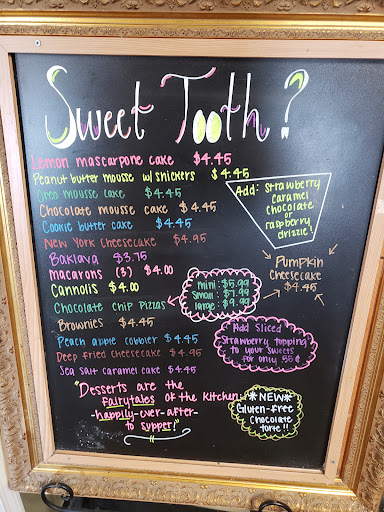 Sweet Tooth?
Lemon mascarpone cake $4.45
Peanut butter mousse w/ snickers $4.45
Oreo mousse cake $4.45
Chocolate mousse cake $4.45
Cookie butter cake $4.45
New York Cheesecake $4.95
Baklava $3.75
macarons (3) $4.00
Cannolis $4.00
Chocolate chip Pizzas
mini: $5.99
small: $7.99
large: $9.99
Brownies $4.45
Peach apple cobbler $4.45
Deep fried cheesecake $4.95
Sea salt caramel cake $4.45
Add: strawberry
caramel
chocolate
or
raspberry
drizzle!
Pumpkin
Cheesecake
$4.45
Add Sliced
Strawberry topping
to your sweets
for only 85¢
"Desserts are the
fairytales of the kitchen
-happily-ever-after-
to supper!"
*NEW*
Gluten-free
Chocolate
torte!!